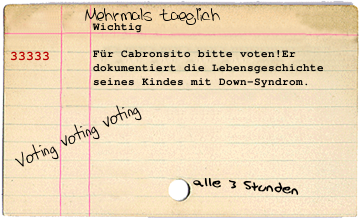 Mehrmals taeglich
Wichtig
33333 Für Cabronsito bitte voten!Er
dokumentiert die Lebensgeschichte
seines Kindes mit Down-Syndrom.
Voting voting voting
alle 3 Stunden